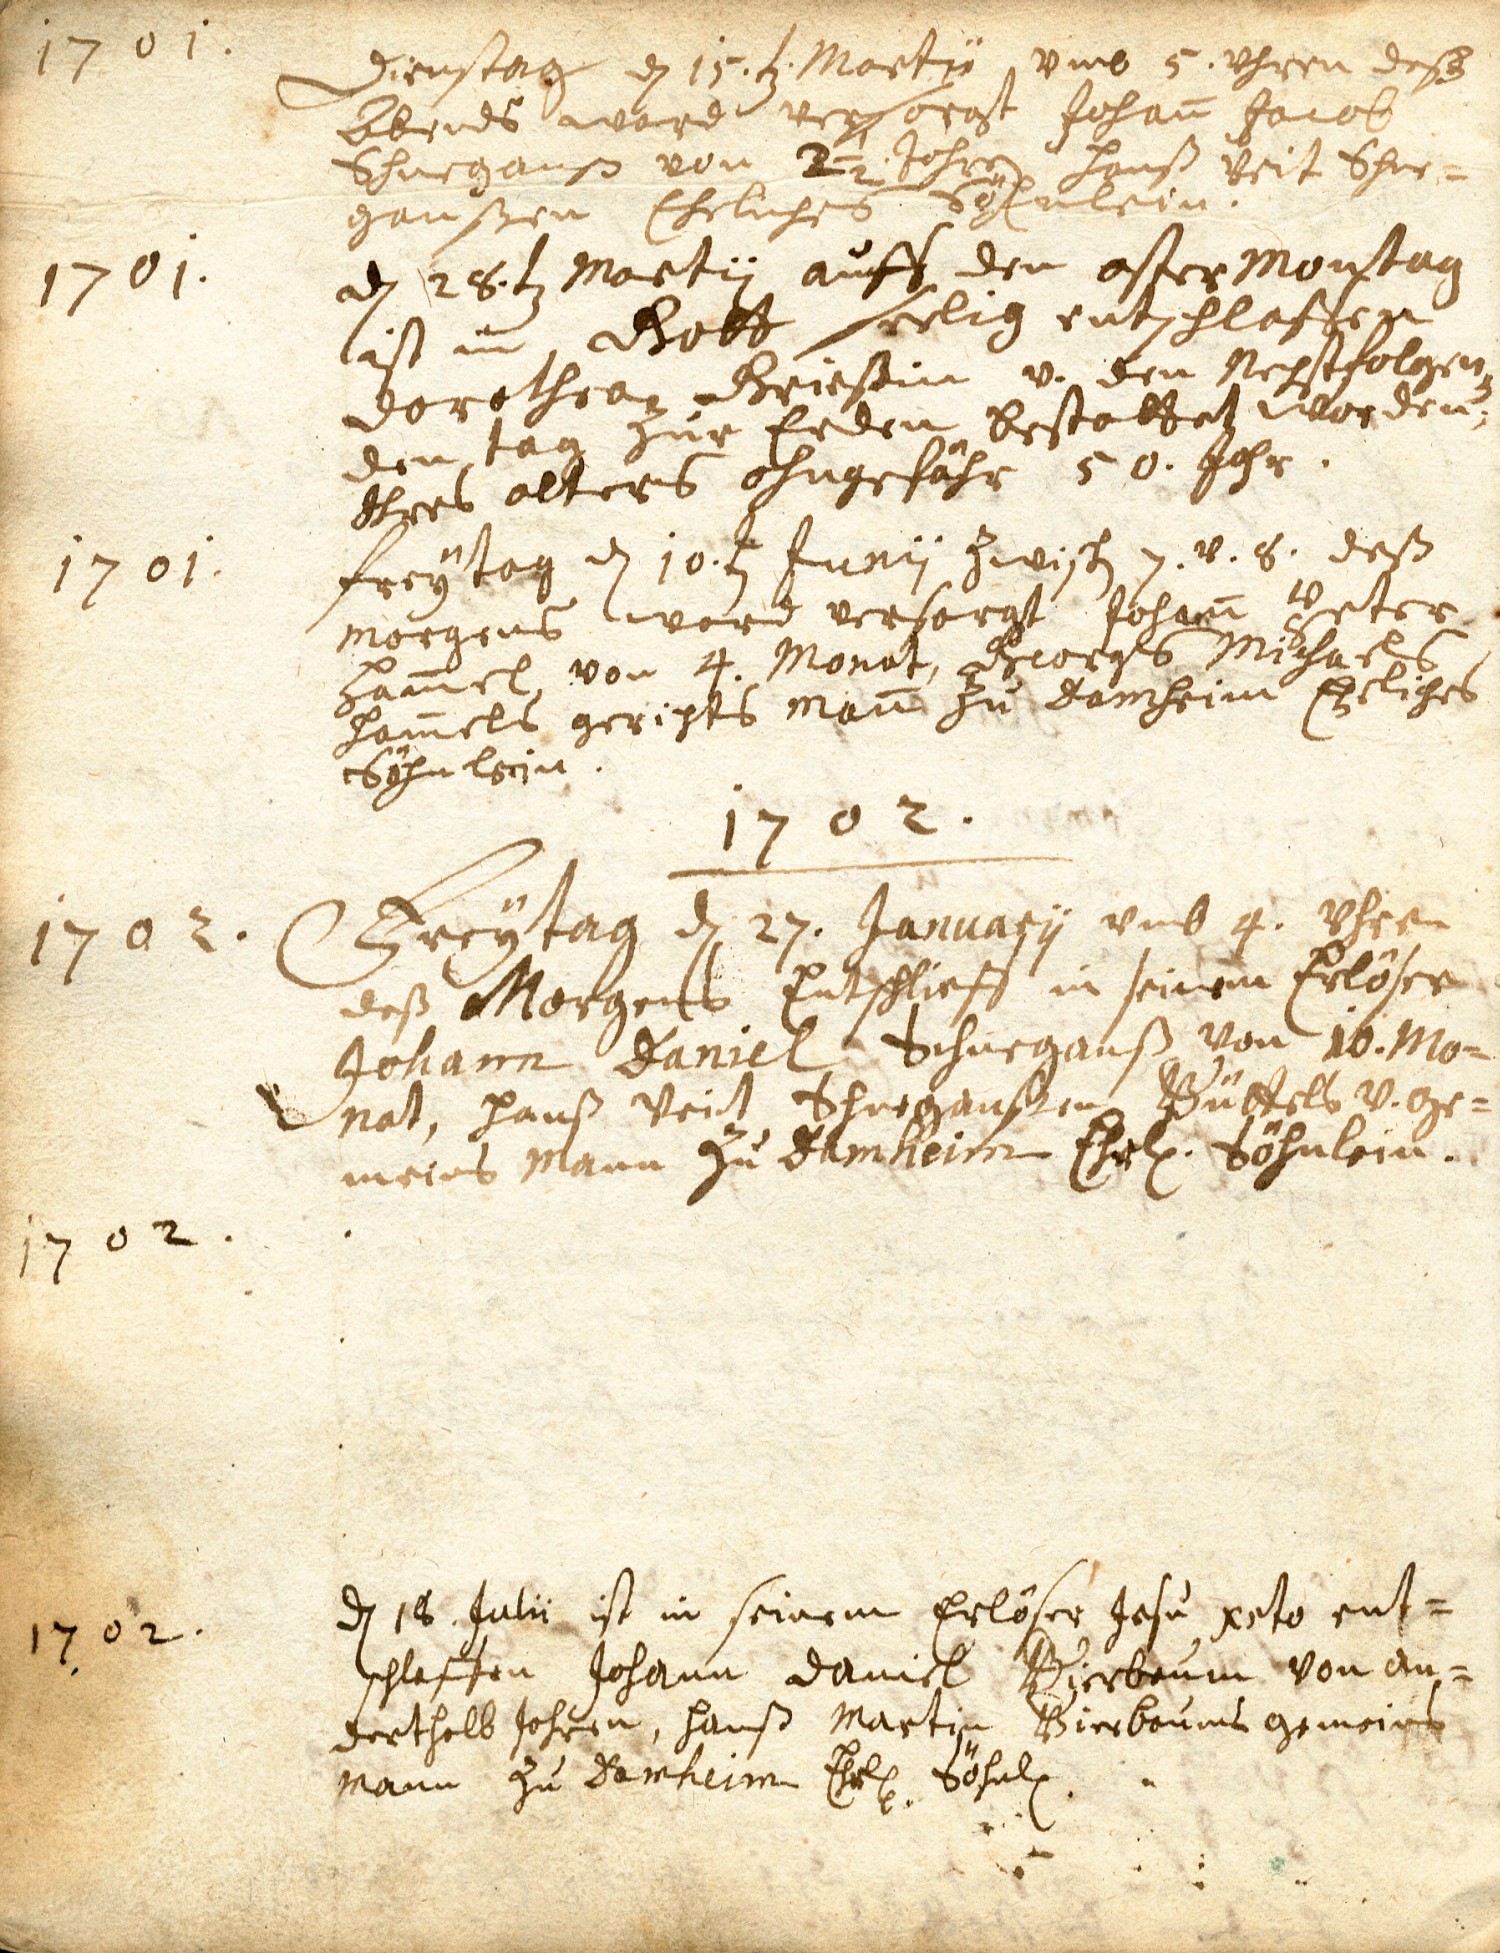 1701.
Dienstag d 15.t. Martii vmb 5. Vhren deß
Abends ward versorgt Johan̄ Jacob
Schnegansß von 2 1/2. Jahren Hanß Veit Schne=
ganßen Eheliches Söhnlein.
1701.
d 28.t Martij auff den oster Monstag
ist in Gott seelig entschlaffen
Dorothea Grießin v. den Nechstfolgen,
den tag zur Erden bestattet worden,
Ihres alters ohngefähr 50. Jahr.
1701.
Freÿtag d 10.t Junij zwisch 7. v. 8. deß
Morgens ward versorgt Johan̄ Peter
Ham̄el von 4. Monat, Georgs Michaels
Ham̄els gerichts Man̄ zu Damheim Eheliches
Söhnlein.
1702.
1702.
Freÿtag d 27. Januarij vmb 4. Vhren
deß Morgens Entschlieff in seinem Erlöser
Johann Daniel Schneganß von 10. Mo=
nat, Hanß Veit Schneganßen Büttels v. Ge=
meins Mann zu Damheim Ehel. Söhnlein.
1702.
1702.
d 18 Julii ist in seinem Erlöser Jesu xsto ent=
schlaffen Johann Daniel Bierbaum von an=
derthalb Jahren, Hanß Martin Bierbaums gemeins
Mann zu Damheim Ehel. Söhnl.